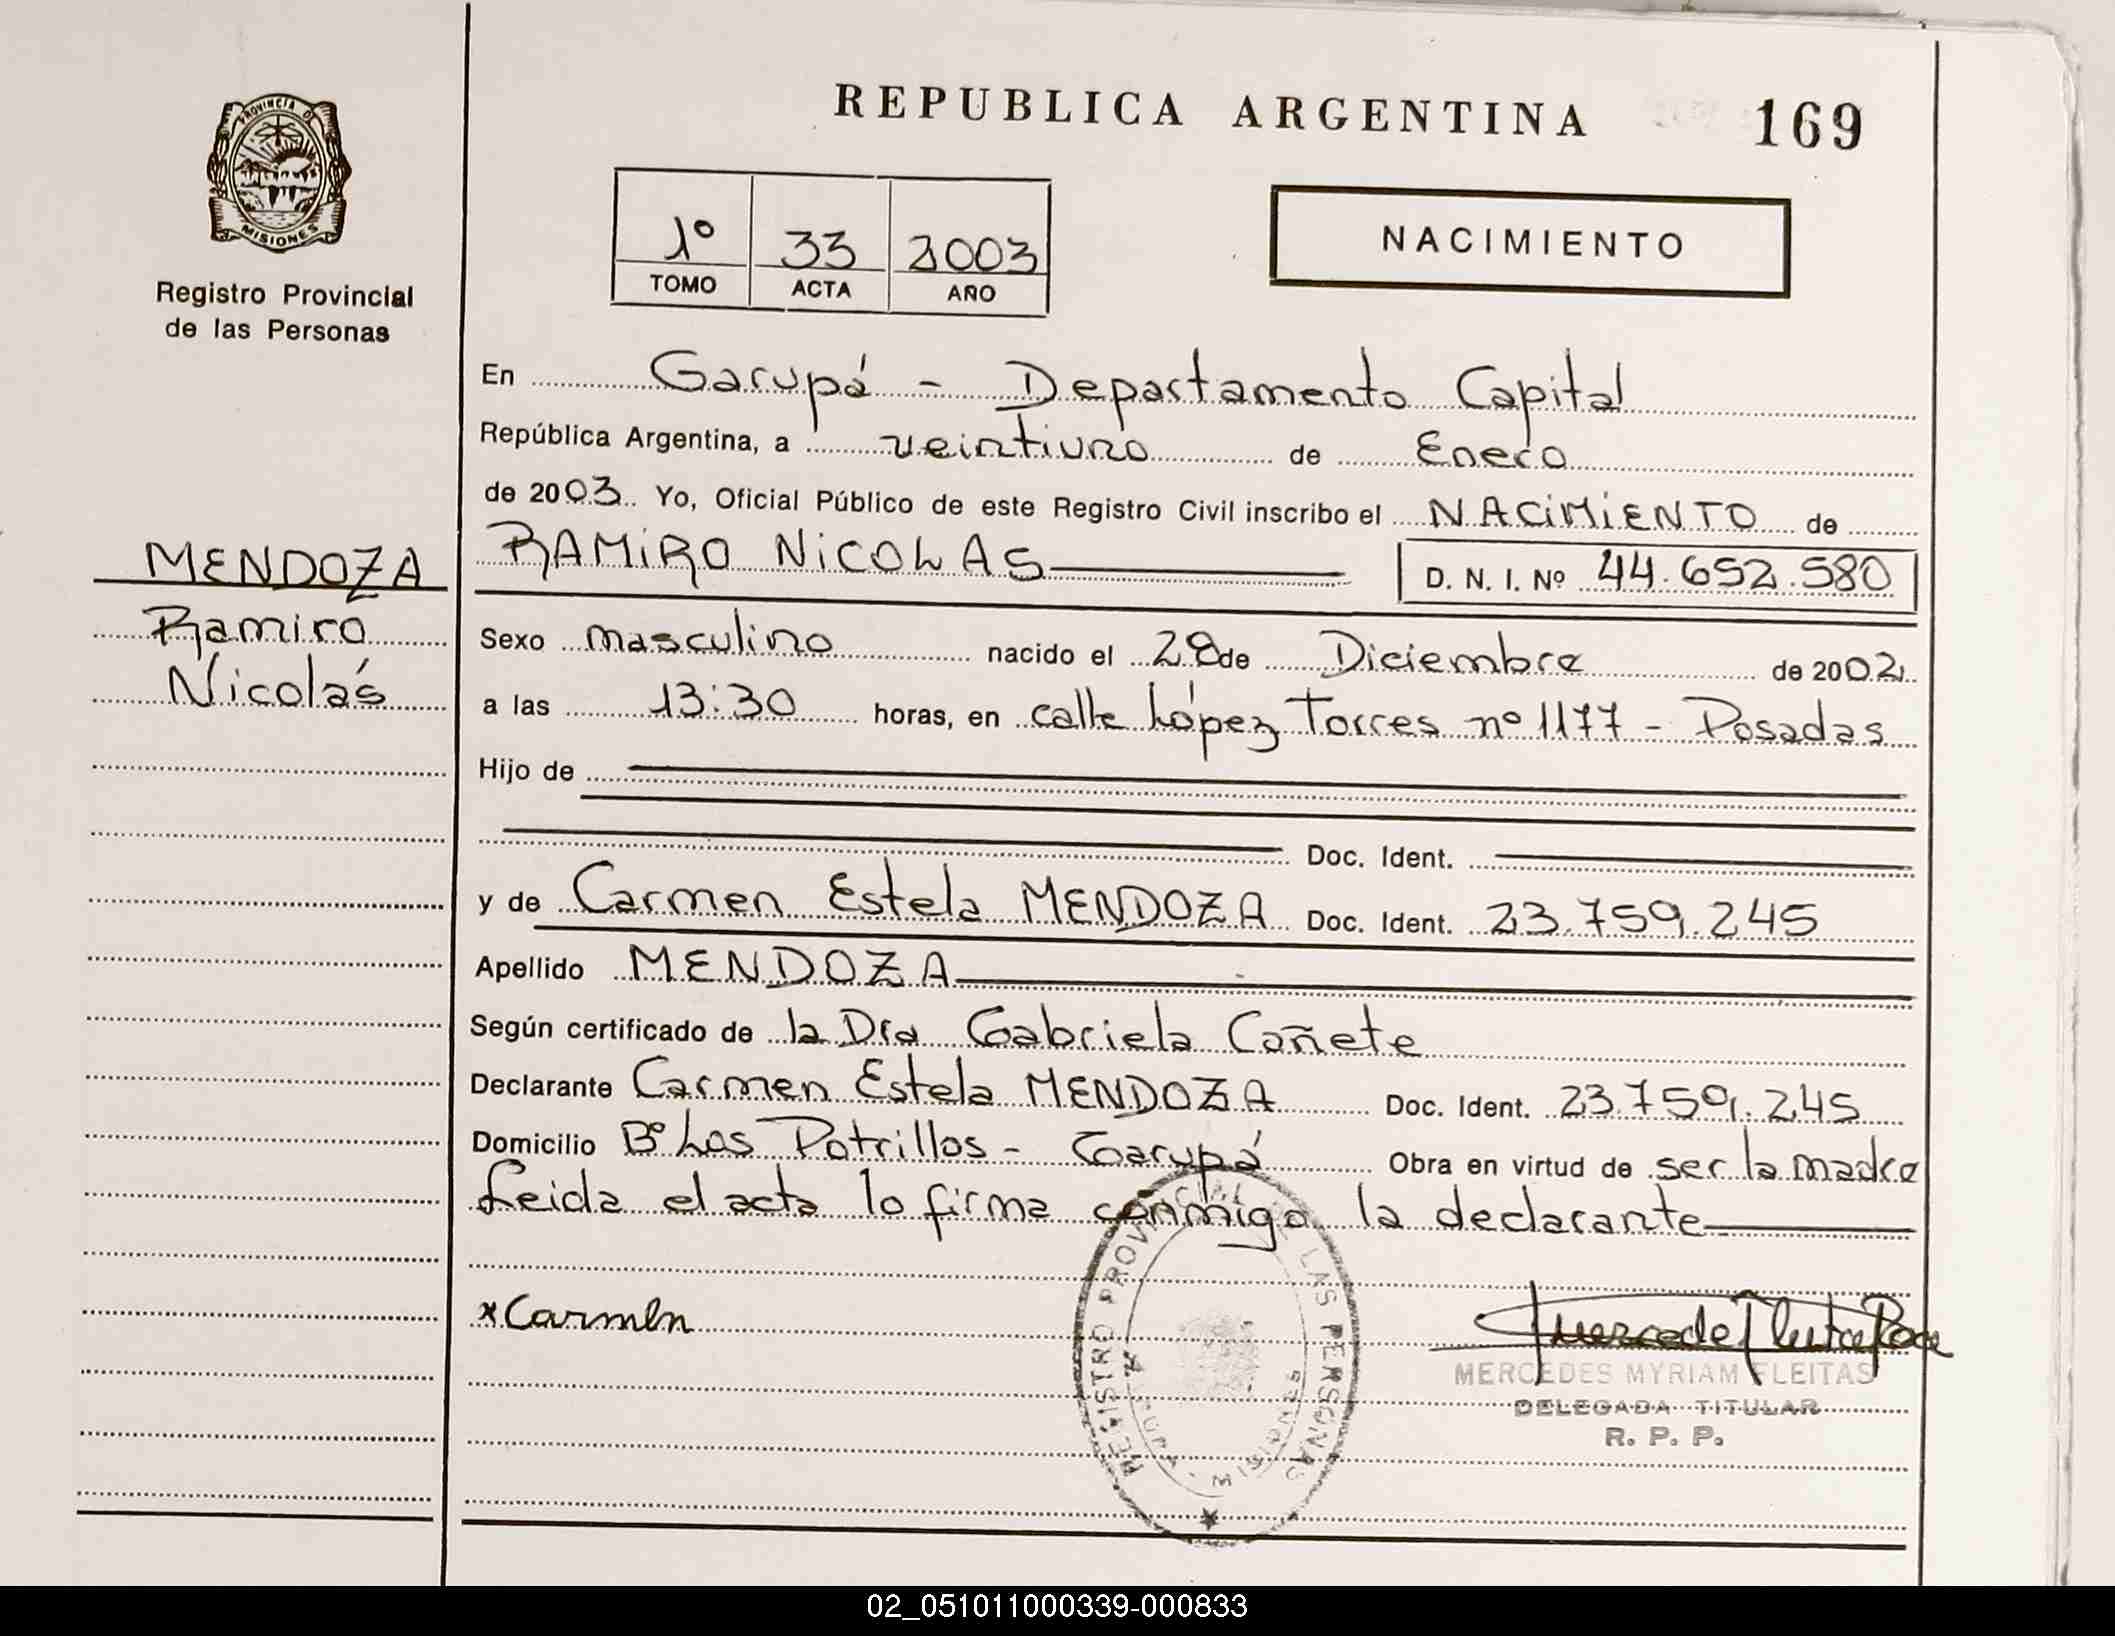 PROVINCIA DE
MISIONES
Registro Provincial
de las Personas
MENDOZA
Ramiro
Nicolás
REPUBLICA ARGENTINA 169
1º 33 2003
TOMO ACTA AÑO
NACIMIENTO
En Garupá - Departamento Capital
República Argentina, a veintiuno de Enero
de 2003 Yo, Oficial Público de este Registro Civil inscribo el NACIMIENTO de
RAMIRO NICOLAS D. N. I. Nº 44.652.580
Sexo masculino nacido el 28 de Diciembre de 2002
a las 13:30 horas, en calle López Torres nº 1177 - Posadas
Hijo de
Doc. Ident.
y de Carmen Estela MENDOZA Doc. Ident. 23.759.245
Apellido MENDOZA
Según certificado de la Dra Gabriela Cañete
Declarante Carmen Estela MENDOZA Doc. Ident. 23.759.245
Domicilio Bº Los Potrillos - Garupá Obra en virtud de ser la madre
Leida el acta lo firma conmigo la declarante
x Carmen
REGISTRO PROVINCIAL DE LAS PERSONAS
MISIONES
MERCEDES MYRIAM FLEITAS
DELEGADA TITULAR
R. P. P.
02_051011000339-000833